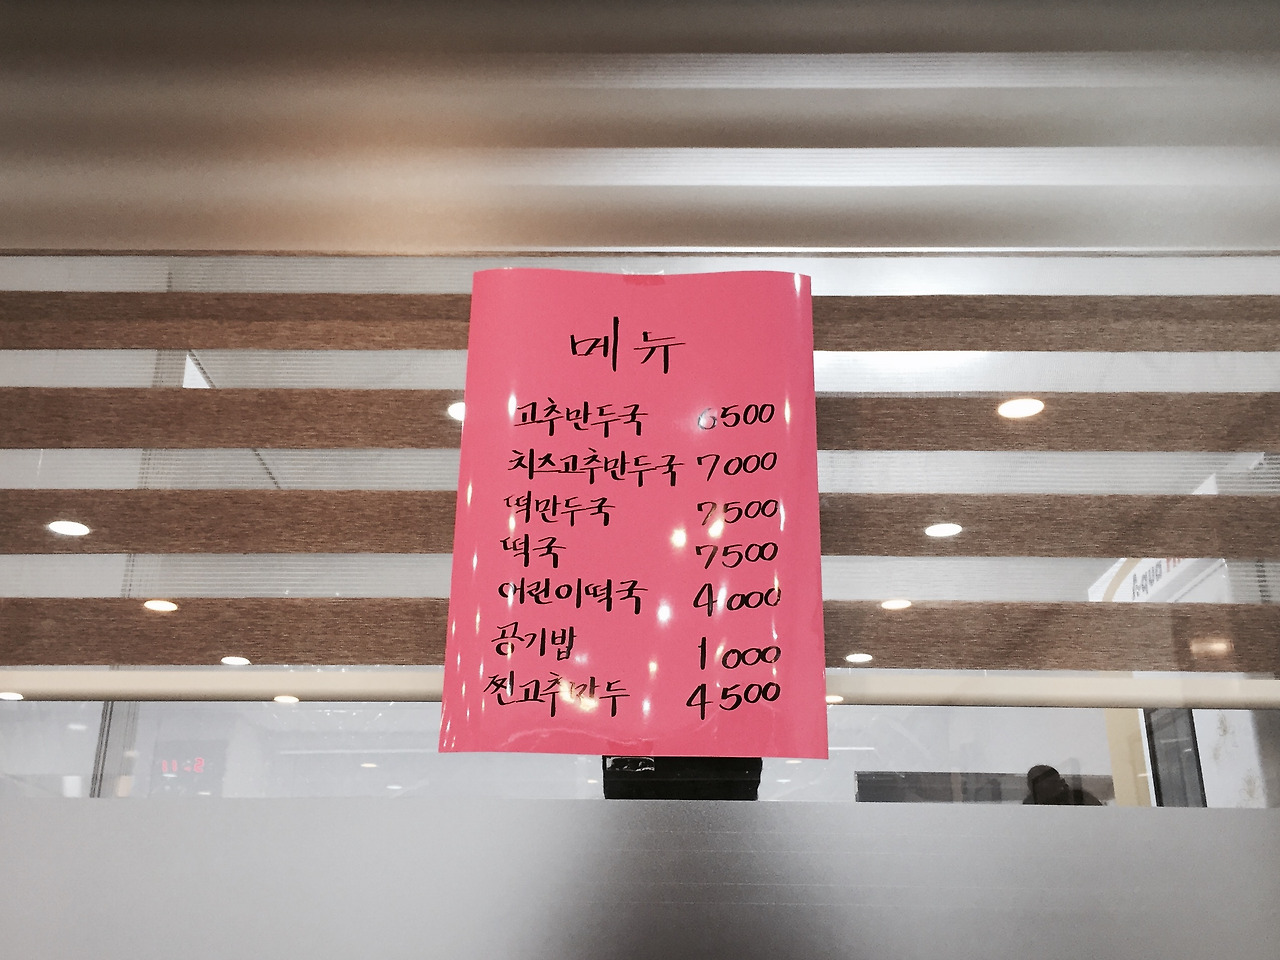 메뉴
고추만두국 6500
치즈고추만두국 7000
떡만두국 7500
떡국 7500
어린이떡국 4000
공기밥 1000
찐고추만두 4500
Aqua